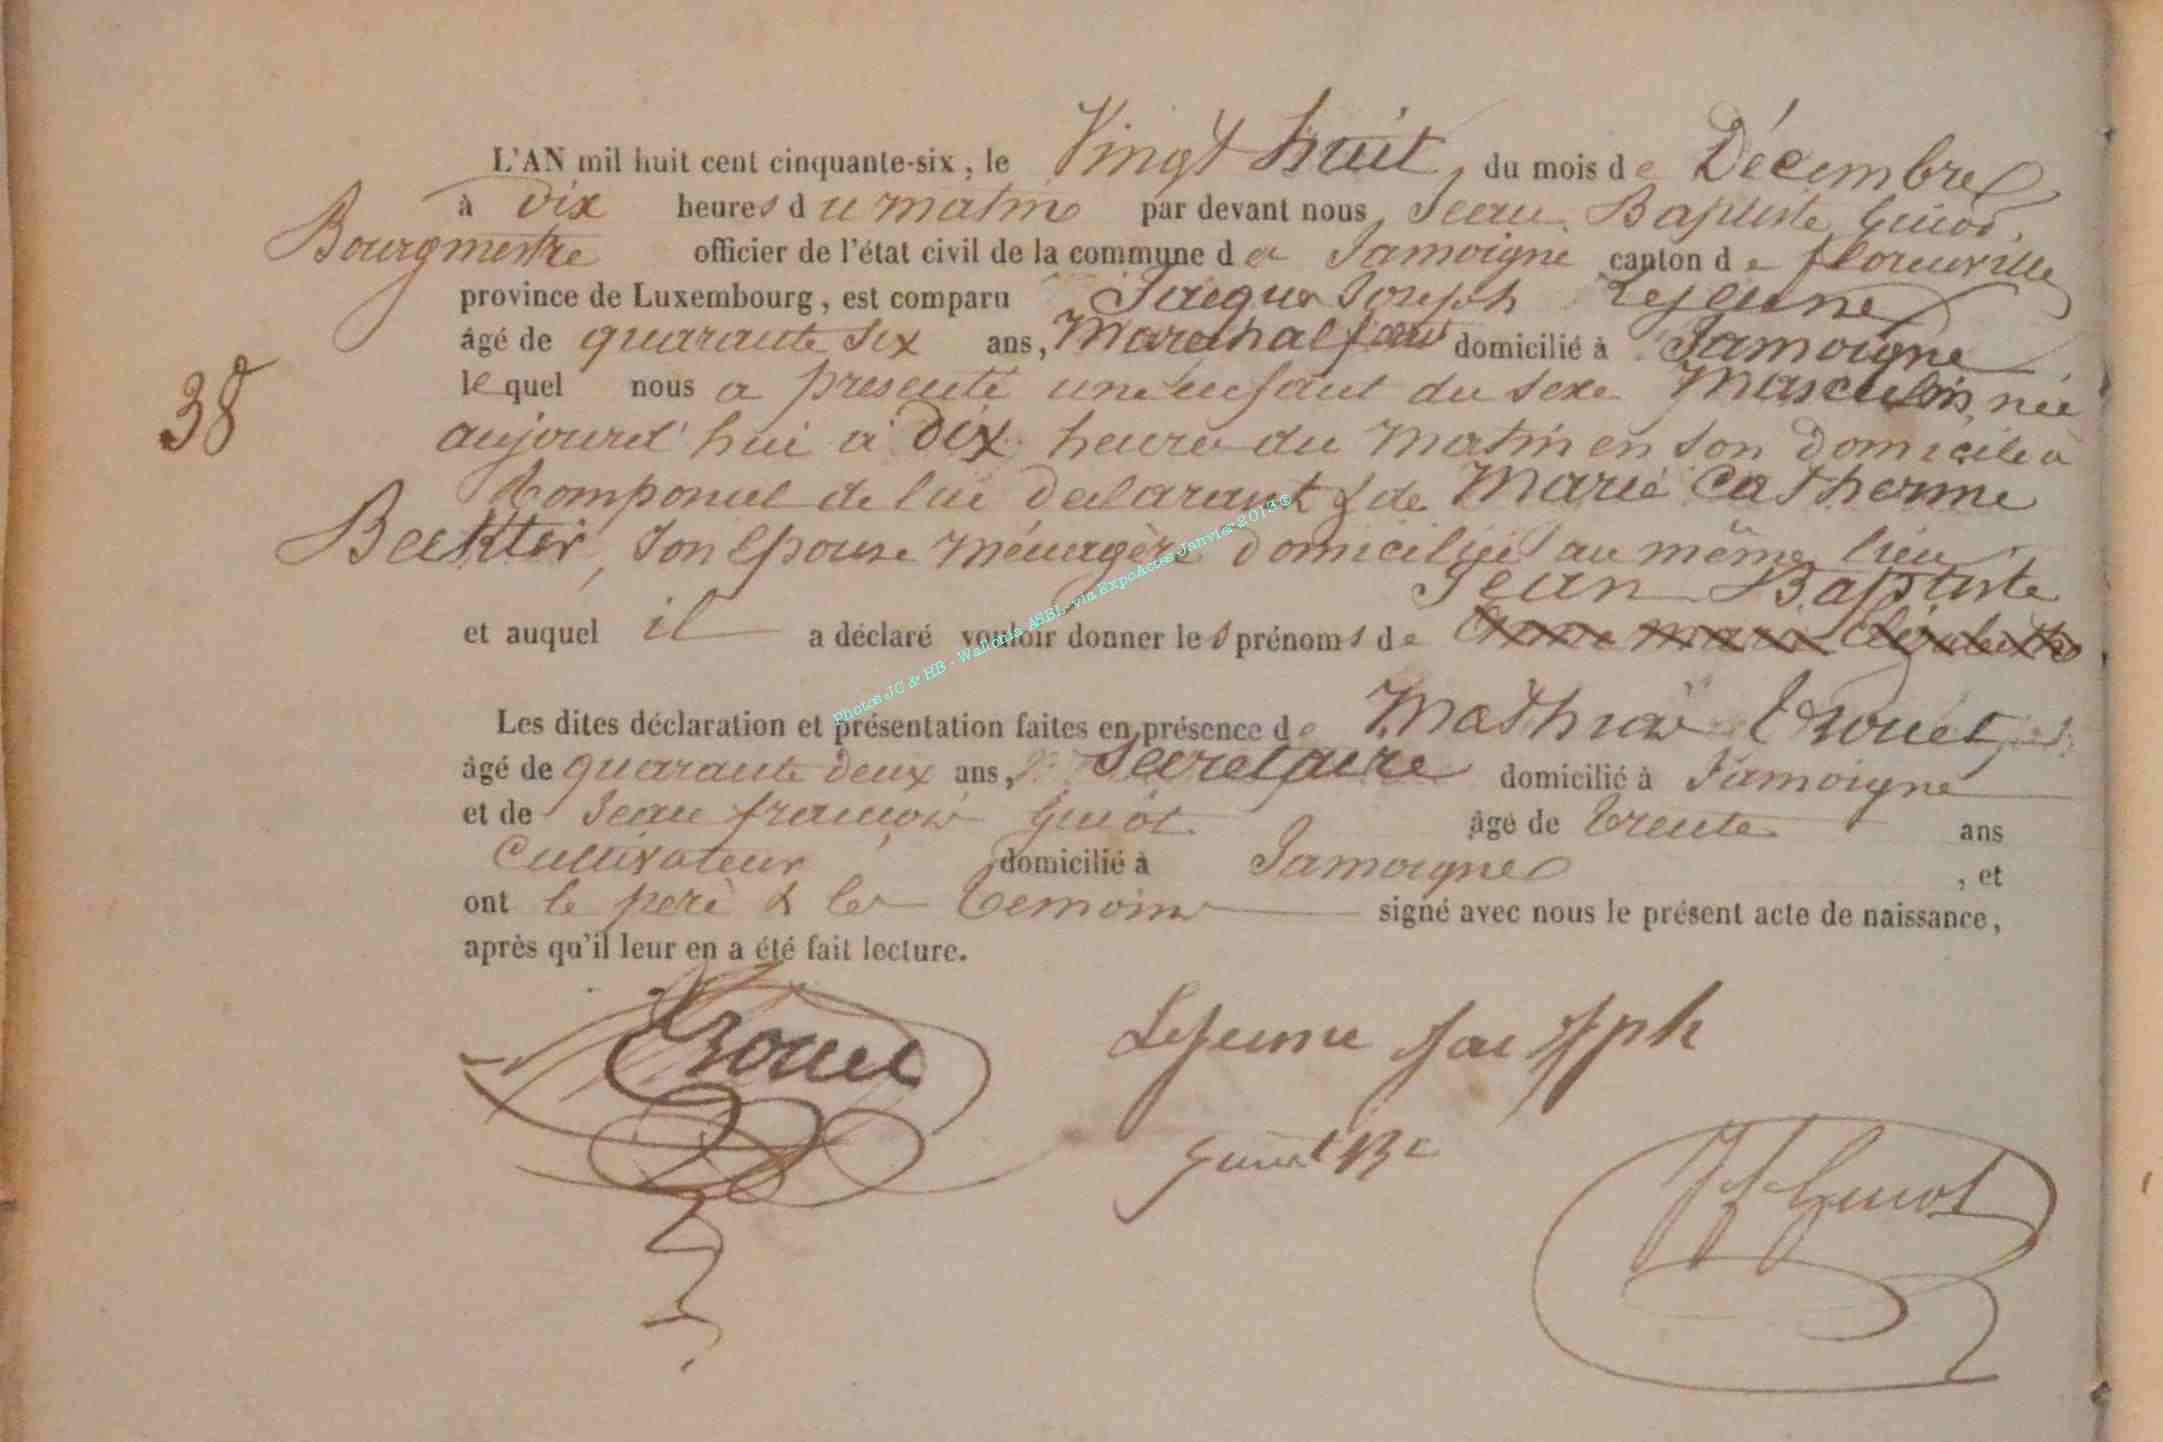 L'AN mil huit cent cinquante-six, le Vingt huit, du mois de Décembre
à Dix heures du matin par devant nous, Jean Baptiste Guiot,
Bourgmestre officier de l'état civil de la commune de Jamoigne canton de florenville
province de Luxembourg, est comparu Jacques Joseph Lejeune
âgé de quarante six ans, Marechal domicilié à Jamoigne
lequel nous a présenté une enfant du sexe Masculin, née
aujourd'hui à Dix heures du Matin en son Domicile à
de lui Declarant & de Marie Catherine
Beckter, son Epouse Ménagère domiciliés au même lieu
Jean Baptiste
et auquel il a déclaré vouloir donner les prénoms de
Les dites déclaration et présentation faites en présence de Mathias Trouet,
âgé de quarante deux ans, Secretaire domicilié à Jamoigne
et de Jean françois Guiot âgé de Trente ans
Cultivateur domicilié à Jamoigne, et
ont le père & les Temoins signé avec nous le présent acte de naissance,
après qu'il leur en a été fait lecture.
38
Trouet
Lejeune Joseph
JfGuiot
Photos JC & HB - Wallonia ASBL, via ExpoActes Janvier 2013 ®